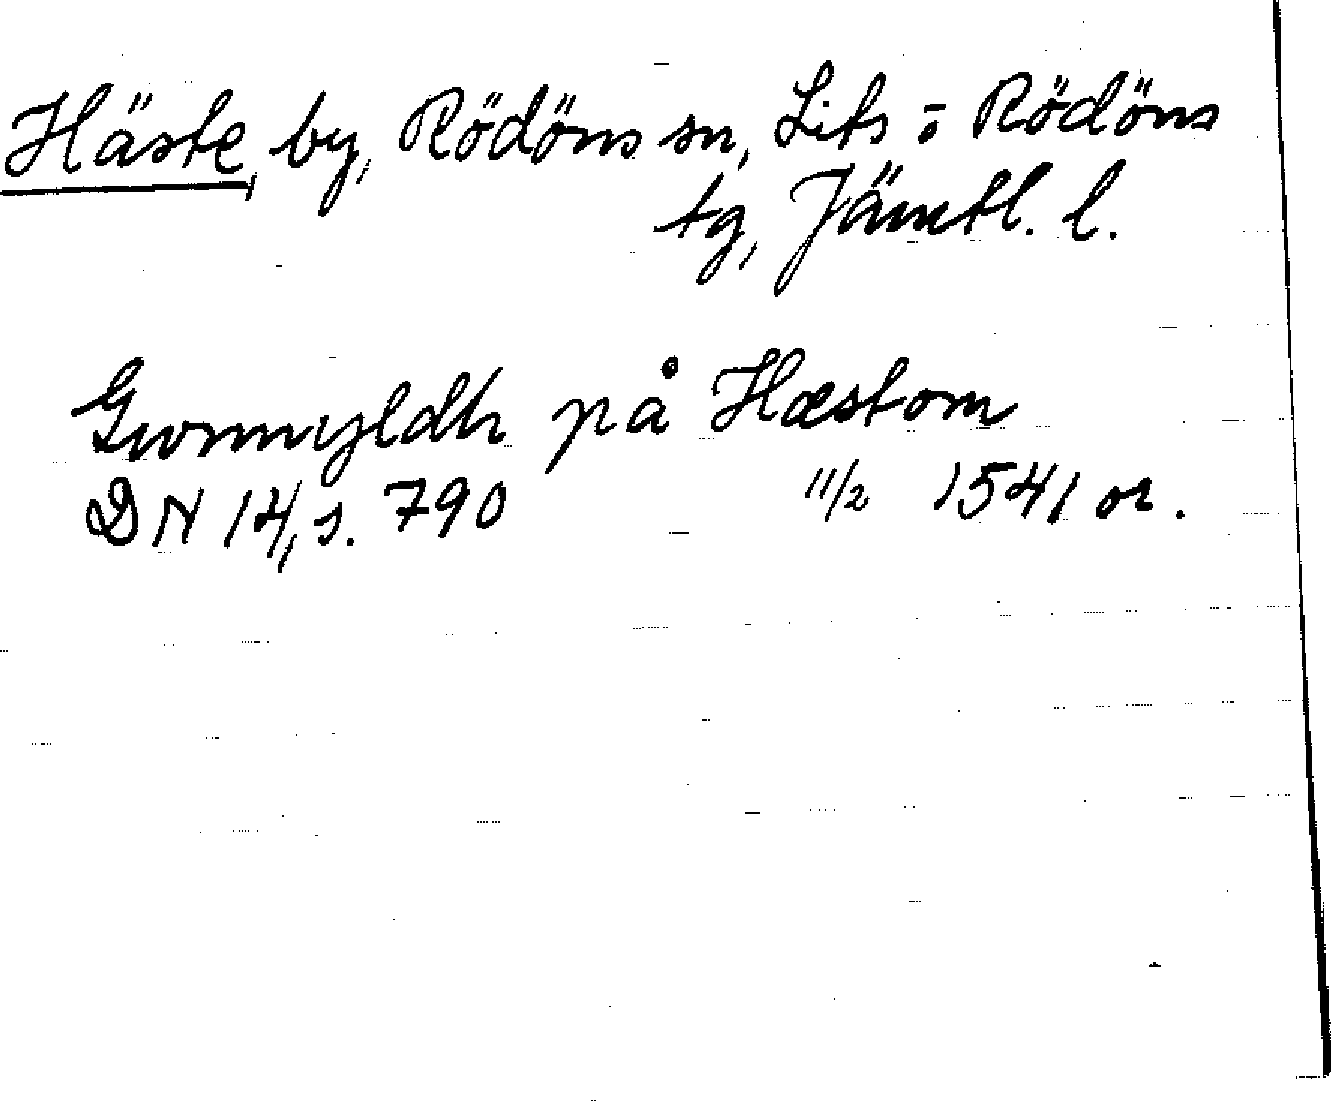 Häste, by, Rödöns sn, Lits o Rödöns
tg, Jämtl. l.
Gwnnyldh på Hæstom
DN 14, s. 790 11/2 1541 or.